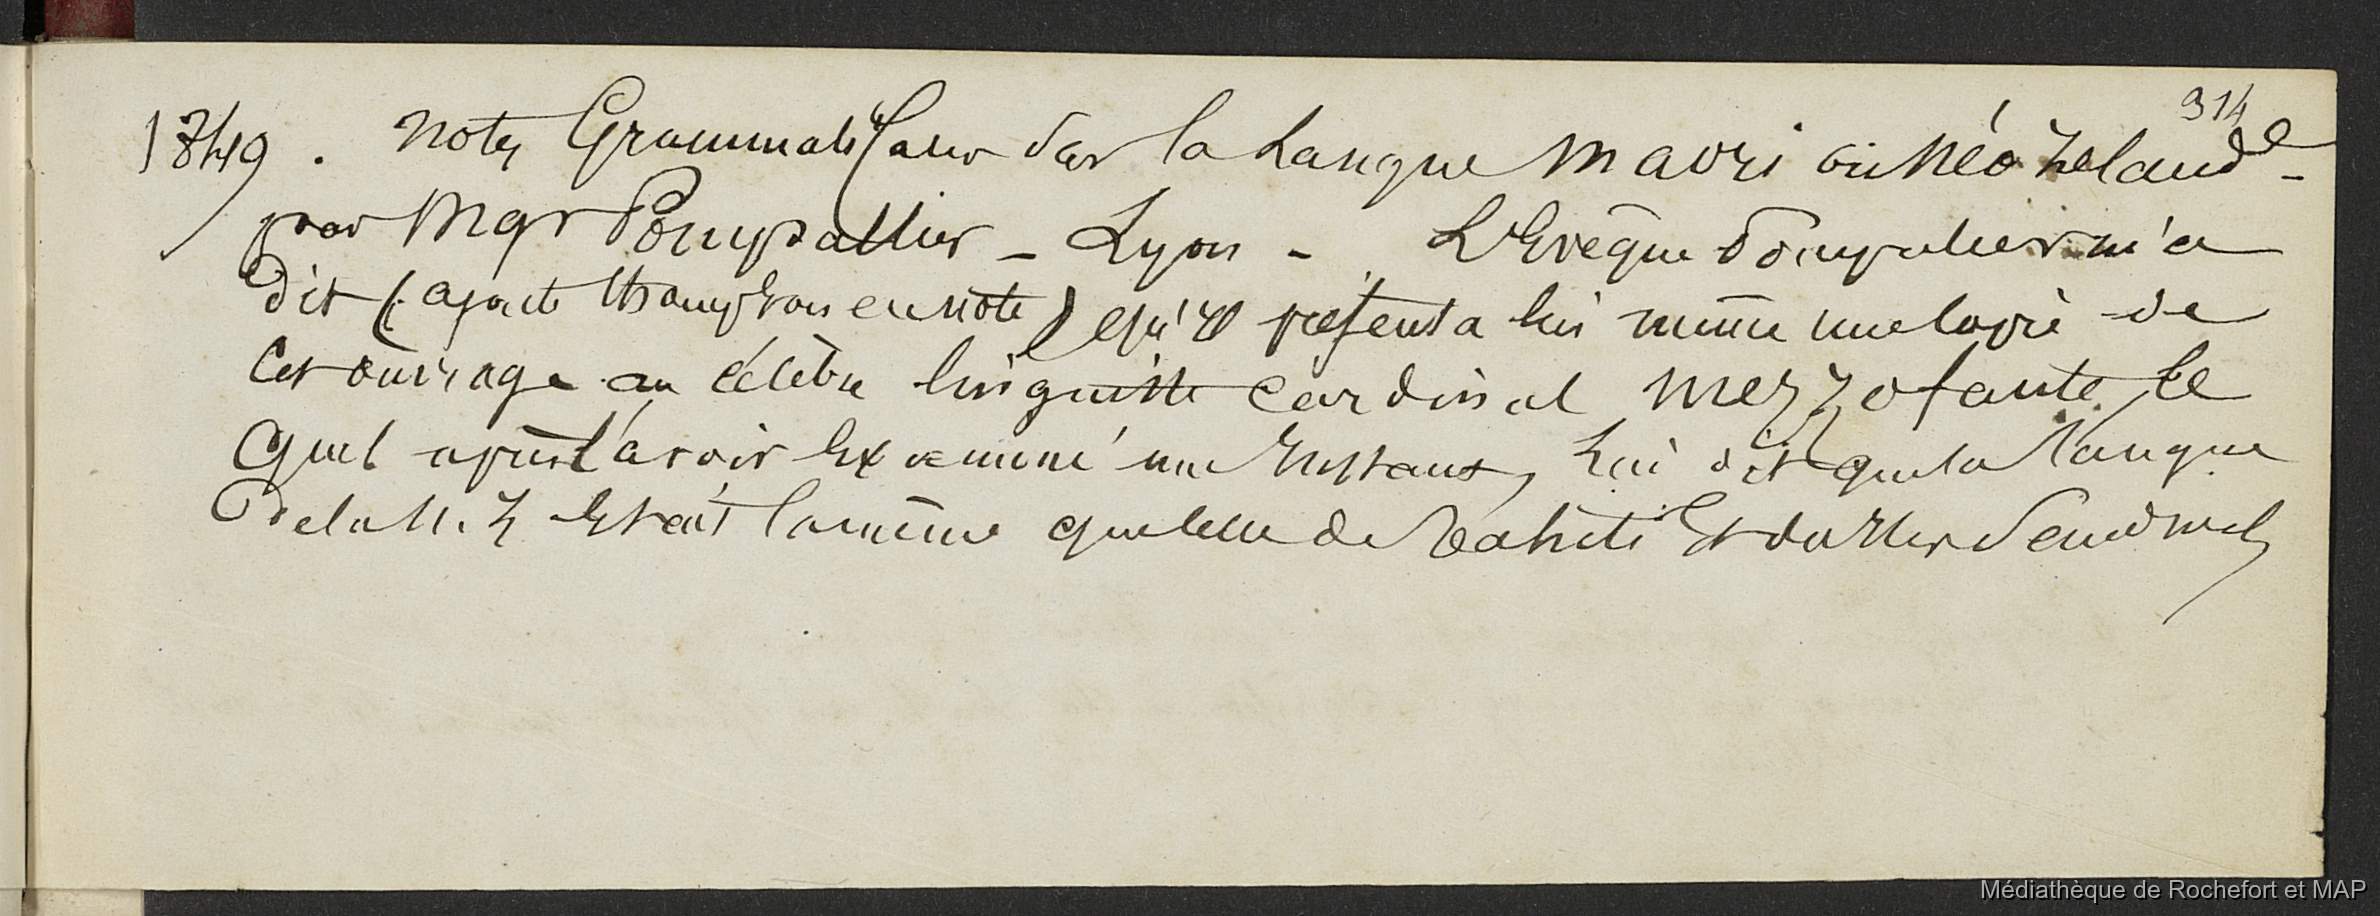 314
1849. Notes Grammaticales sur la Langue Maori ou Néo Zelande -
par Mgr Pompallier - Lyon - L'Evêque Pompalier m'a
dit (ajoute Thompson en note) qu'il présenta lui même une copie de
cet ouvrage au célèbre linguiste cardinal Mezzofante le
quel après l'avoir examiné un Instant, lui dit que la langue
de la N. Z était la même que celle de Tahiti et des Iles Sandwich
Médiathèque de Rochefort et MAP